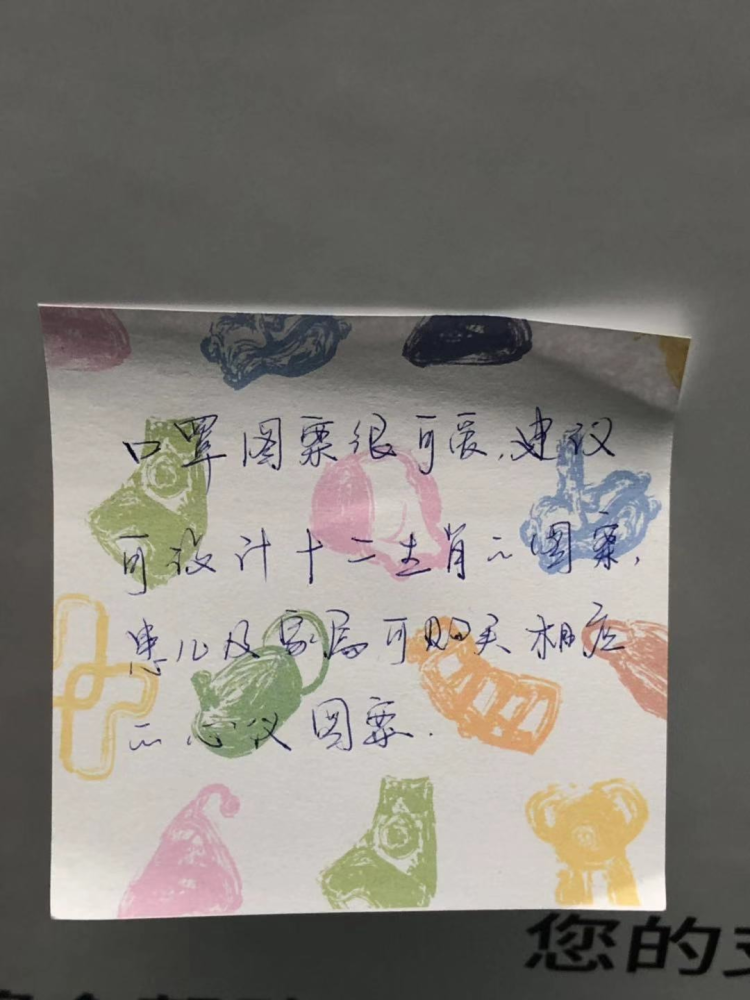 口罩图案很可爱,建议
可设计十二生肖的图案,
患儿及家属可购买相应
的心仪图案.
您的支